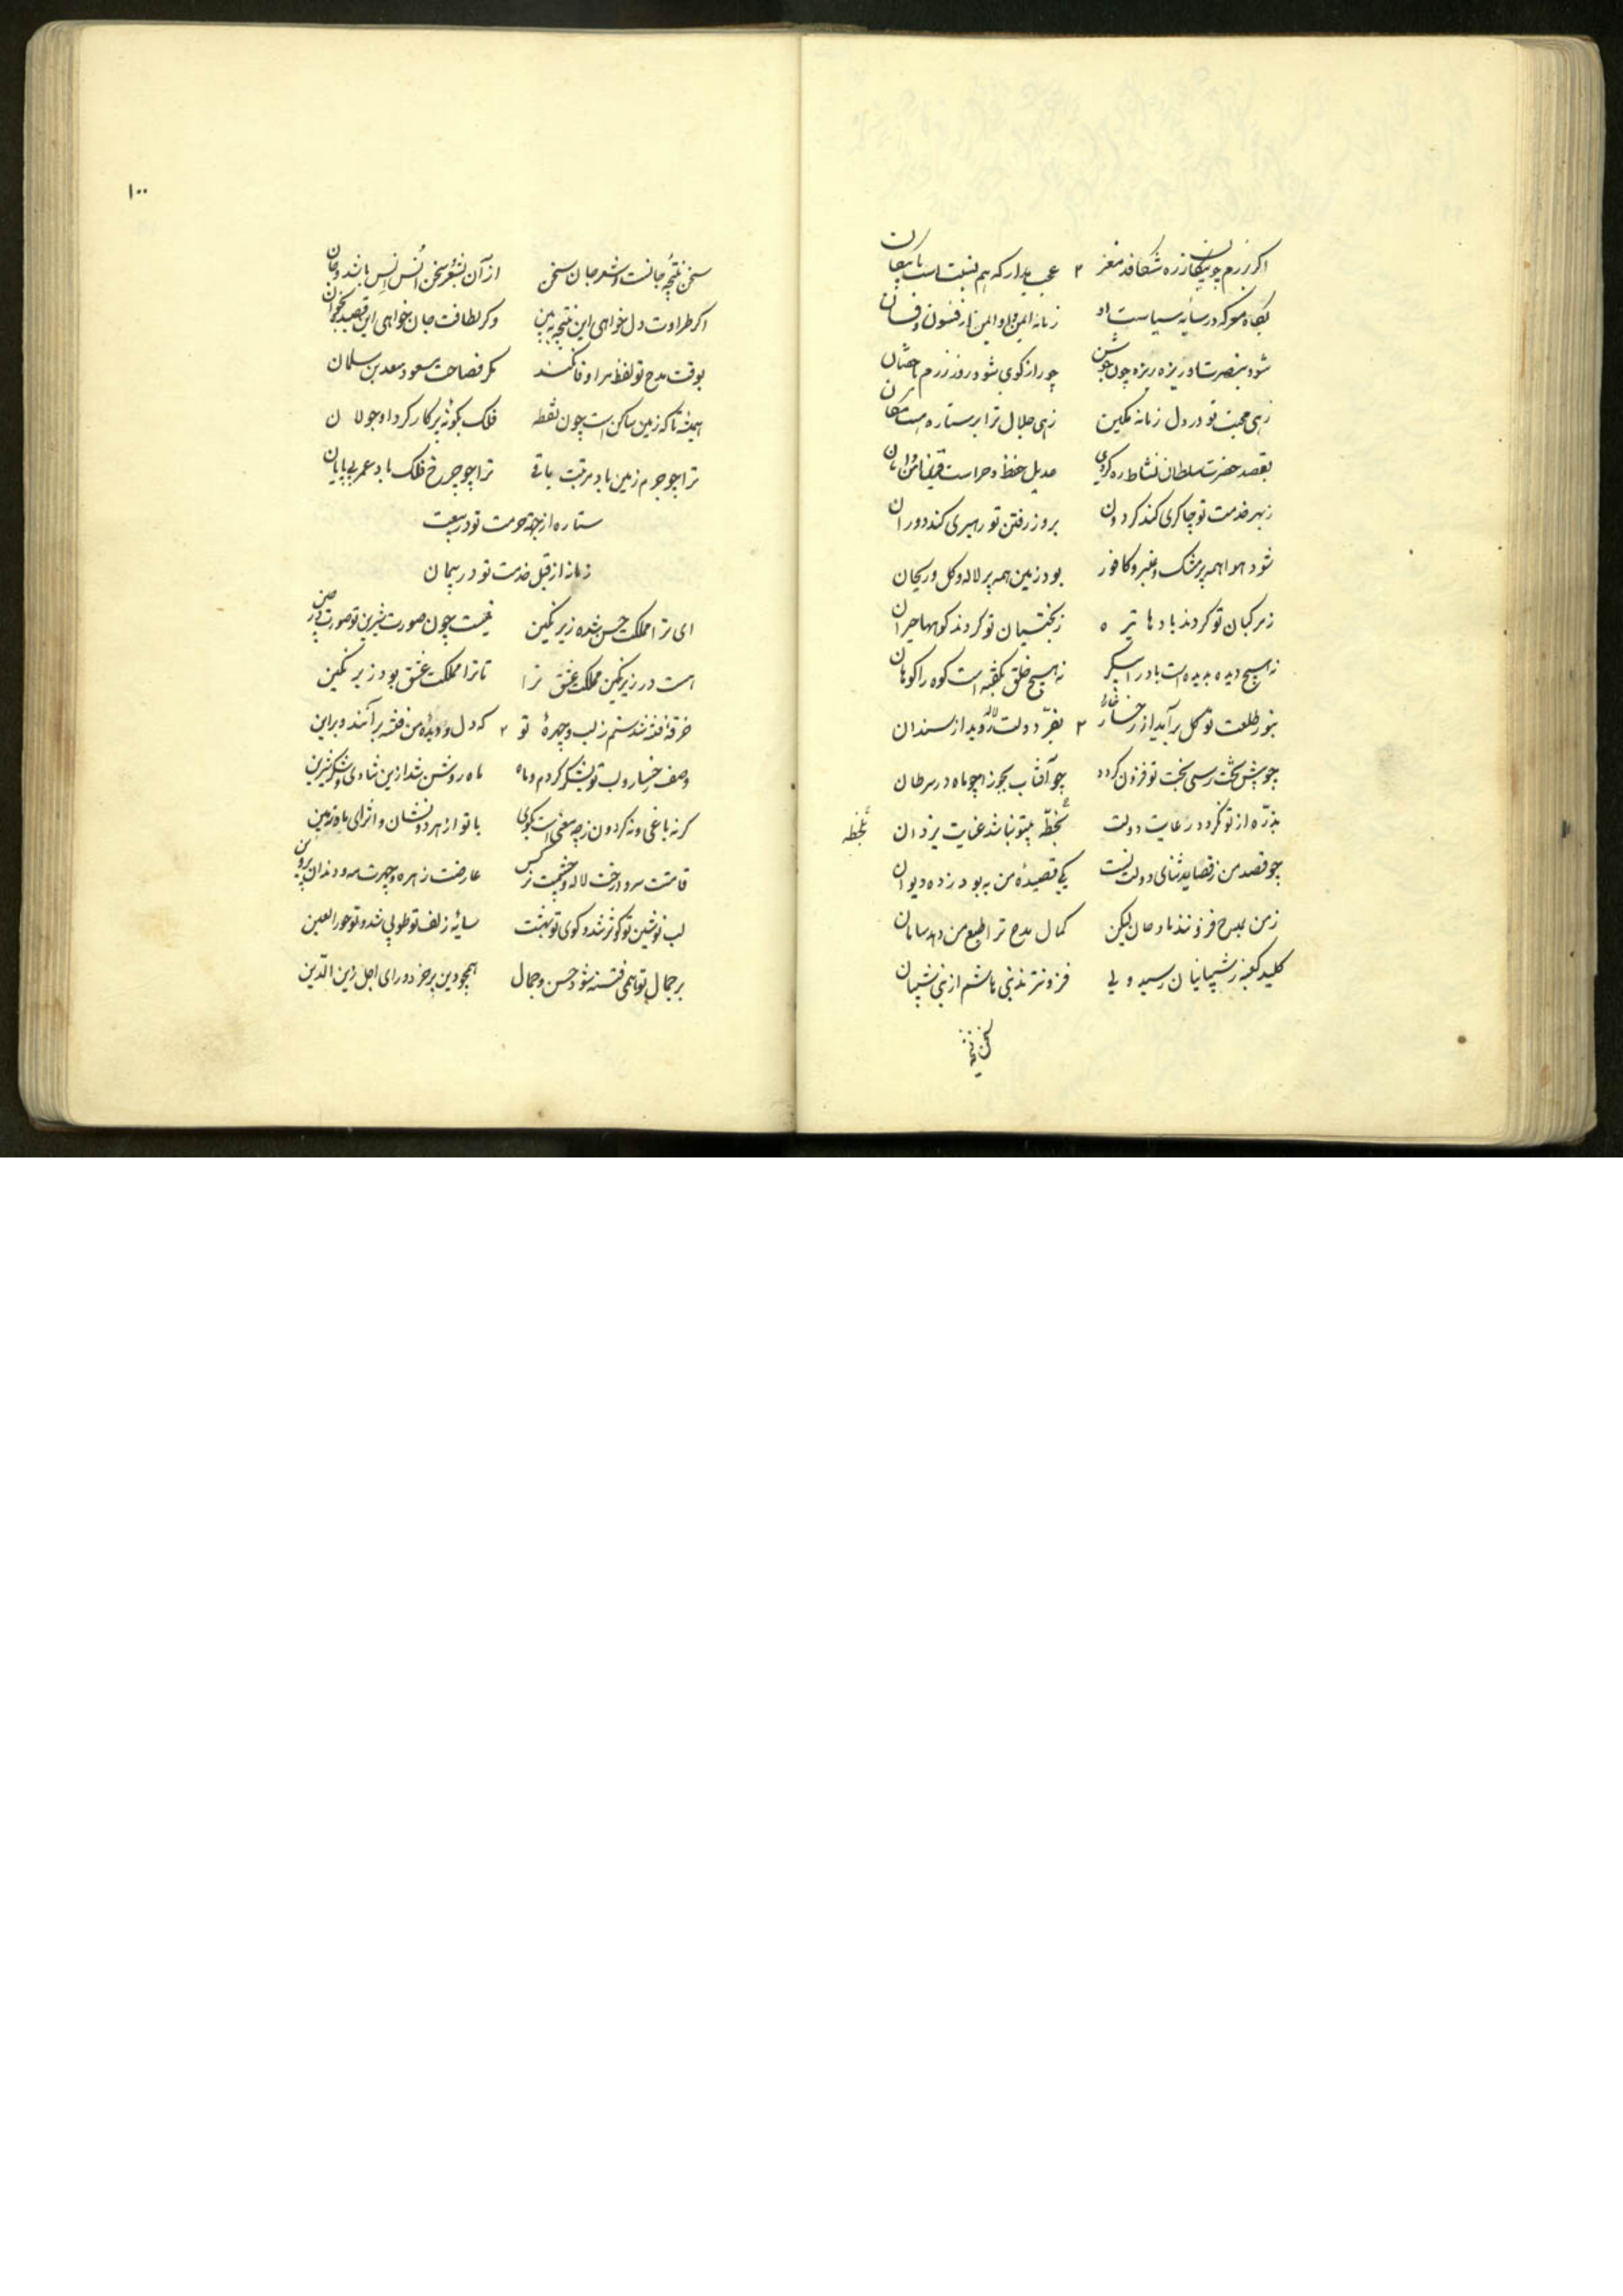 اکر برزم چو پیکانش زره شکافد مغز ۲ عجب مدار که هم نسبت است با پیکان
بگاه معرکه در سایه سیاست او زمانه ایمن و او ایمن از فسون و فسان
شود بنصرت او ریزه ریزه چون جوشن چو راز کوی شود روز رزم
زهی محبت تو در دل زمانه مکین زهی جلال ترا بر ستاره است مکان
بقصد حضرت سلطان نشاط ره کردی عدیل حفظ و حراست قرین امن و امان
ز بهر خدمت تو چاکری کند کردون بروز رفتن تو رهبری کند دوران
شود هوا همه پر مشک و عنبر و کافور بود زمین همه پر لاله و کل و ریحان
ز مرکبان تو کردند بادها تیره ز بختیان تو کردند کوهها حیران
نه هیچ دیده بدیده است باد را پیکر نه هیچ خلق بگفته است کوه را کوهان
بنور طلعت تو کل برآید از رخسار خاره ۲ بفرّ دولت تو لاله روید از سندان
چو پیش تخت رسی بخت تو فزون کردد چو آفتاب بجوزا چو ماه در سرطان
بذرّه از تو نکردد رعایت دولت بلحظهٔ بیتو نباشد عنایت یزدان
بلحظه
چو قصد من ز قصاید ثنای دولت تست یکی قصیدهٔ من به بود ز ده دیوان
ز من بمدح فزونند مادحان لیکن کمال مدح ترا طبع من دهد سامان
کلید کعبه ز شیبانیان رسید ولی فزونترند بنی هاشم از بنی شیبان
سخن نتیجه
۱۰۰
سخن نتیجهٔ جانست و شعر جان سخن از آن بشعر و سخن اُنس اِنس باشد و جان
اکر طراوت دل خواهی این نتیجه ببین وکر لطافت جان خواهی این قصیده بخوان
بوقت مدح تو لفظ مرا وفا نکند مکر فصاحت مسعود سعد بن سلمان
همیشه تا که زمین ساکن است چون نقطه فلک بکونهٔ پرکار کرد او جولان
ترا چو جرم زمین باد مرتبت باقی ترا چو چرخ فلک باد عمر بی پایان
ستاره از جهة حرمت تو در بیعت
زمانه از قبل خدمت تو در پیمان
ای ترا مملکت حسن شده زیر نکین نیست چون صورت شیرین تو صورت در چین
است در زیر نکین مملکت عشق ترا تا ترا مملکت عشق بود زیر نکین
خرقهٔ فتنه شدستم ز لب و چهرهٔ تو ۲ که دل و دیدهٔ من فتنه بر آنند و بر این
وصف رخسار و لب تو بشکر کردم و ماه ماه روشن شد ازین شادی و شکّر شیرین
کر نه باغی و نه کردون ز چه معنی است بکوی با تو از هر دو نشان و اثر ای ماه زمین
قامتت سرو و رخت لاله و چشمت نرکس عارضت زهره و چهرت مه و دندان پروین
لب نوشین تو کوثر شد و کوی تو بهشت سایهٔ زلف تو طوبی شد و تو حور العین
بر جمال تو همی فتنه شود حسن و جمال همچو دین بر خرد و رای اجل زین الدّین